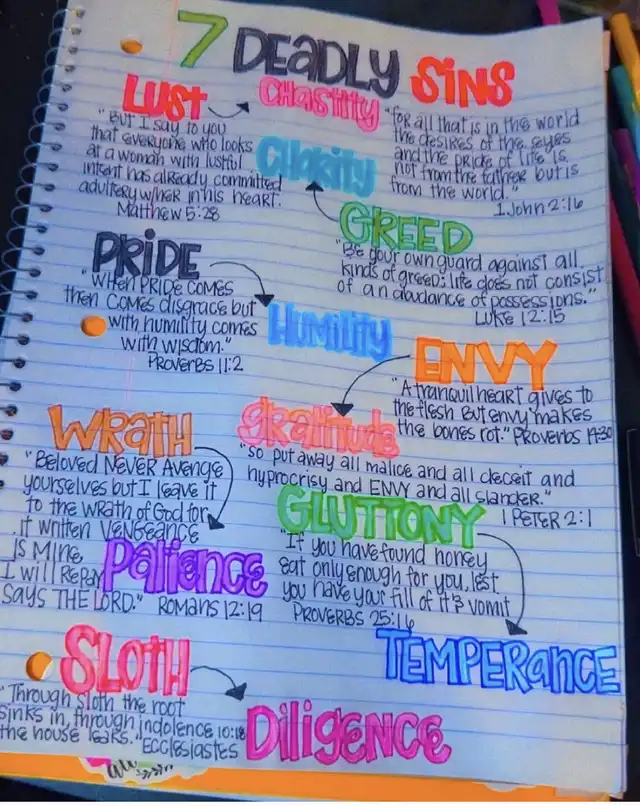 7 DEADLY SINS
LUST
CHASTITY
"But I say to you
that everyone who looks
at a woman with lustful
intent has already committed
adultery w/her in his heart.
Matthew 5:28
"for all that is in the world
the desires of the eyes
and the pride of life is
not from the father but is
from the world."
1 John 2:16
CHARITY
GREED
"Be your own guard against all
kinds of greed: life does not consist
of an abundance of possessions."
LUKE 12:15
PRIDE
"WHEN PRIDE COMES
then COMES disgrace but
with humility comes
with wisdom."
Proverbs 11:2
HUMILITY
ENVY
"A tranquil heart gives to
the flesh But envy makes
the bones rot." Proverbs 14:30
WRATH
gratitude
"Beloved NEVER AVENGE
yourselves but I leave it
to the WRATH of God for
it written VENGEANCE
IS MINE
I will Repay
SAYS THE LORD." ROMANS 12:19
PATIENCE
"so put away all malice and all deceit and
hyprocrisy and ENVY and all slander."
1 PETER 2:1
GLUTTONY
"If you have found honey
eat only enough for you, lest
you have your fill of it & vomit
PROVERBS 25:16
TEMPERANCE
SLOTH
"Through sloth the roof
sinks in, through indolence 10:18
the house leaks." Ecclesiastes
DILIGENCE